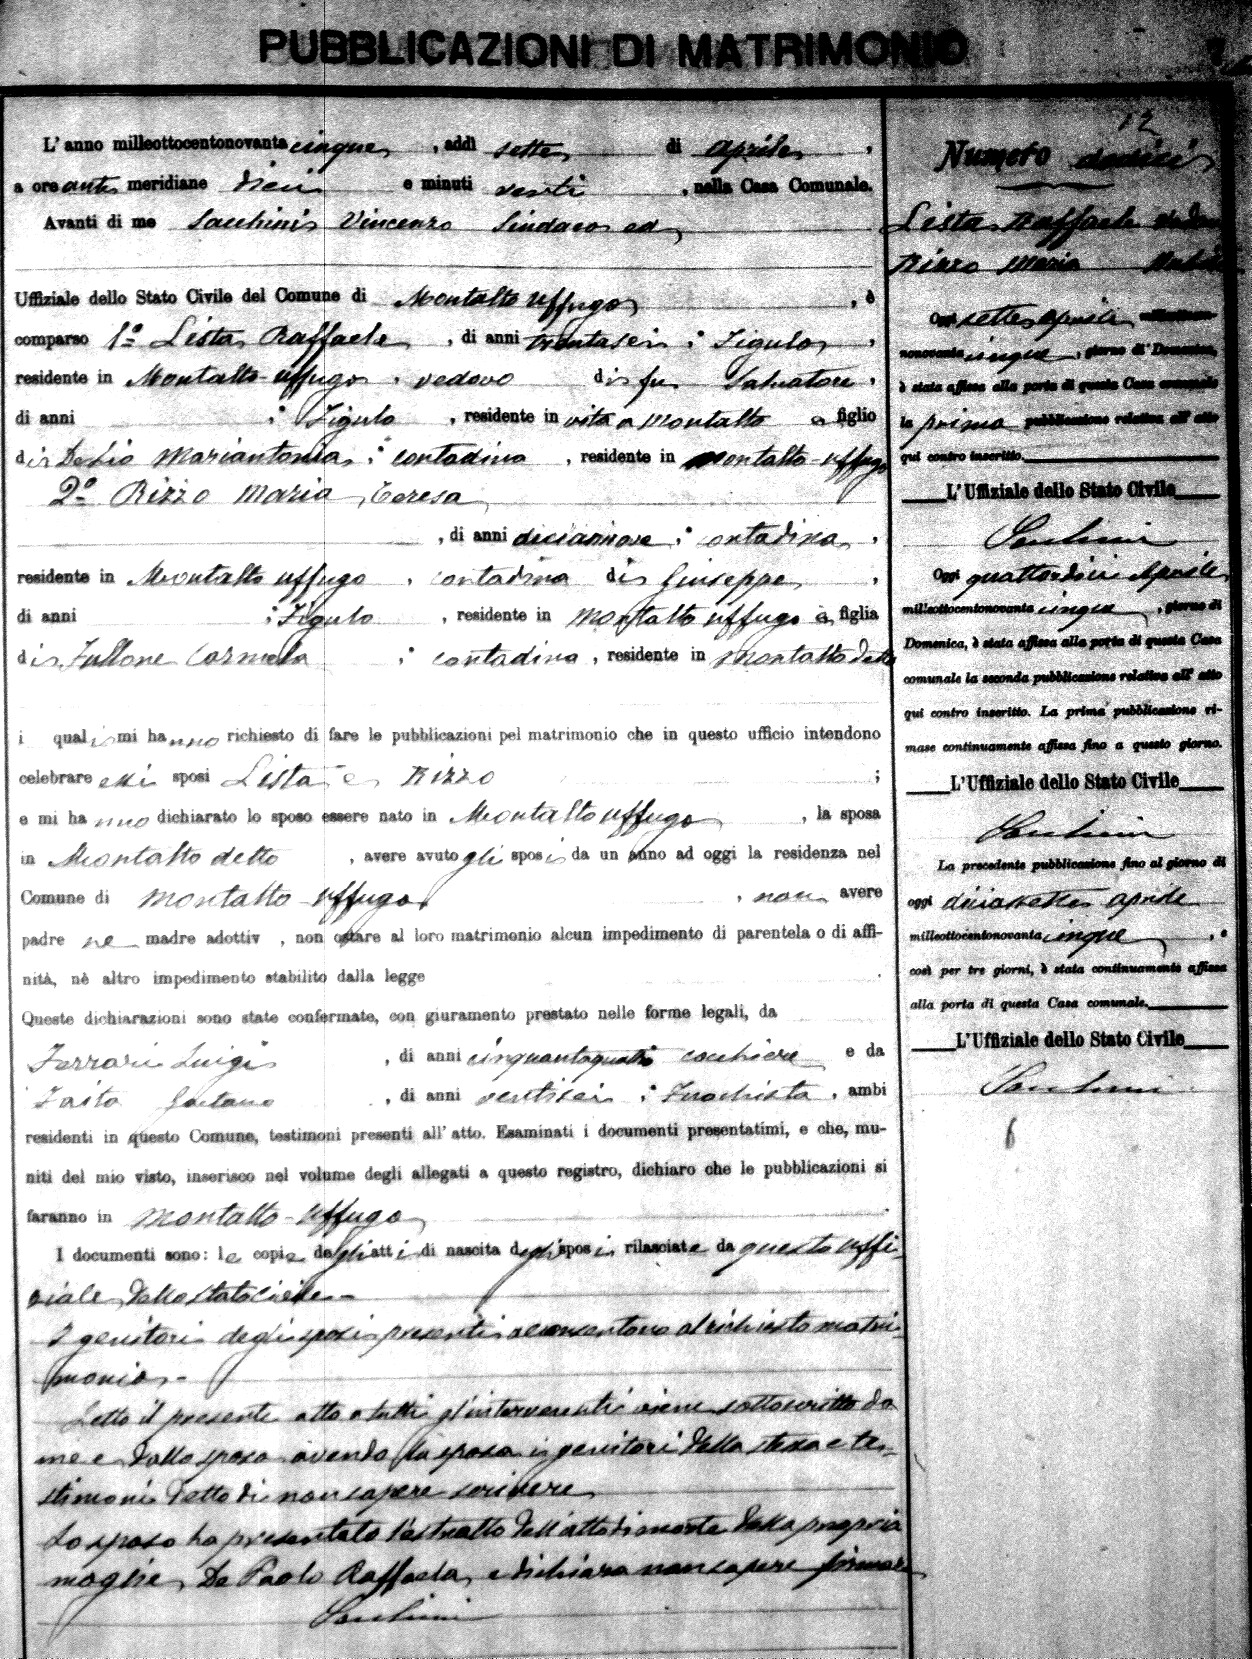 PUBBLICAZIONI DI MATRIMONIO
L' anno milleottocentonovanta cinque, addì sette di aprile,
a ore anti meridiane dieci e minuti venti, nella Casa Comunale.
Avanti di me Sacchini Vincenzo Sindaco ed
Uffiziale dello Stato Civile del Comune di Montalto Uffugo, è
comparso 1º Lista Raffaele, di anni trentasei; Figulo,
residente in Montalto Uffugo, vedovo di fu Salvatore,
di anni ; Figulo, residente in vita a Montalto e figlio
di Mariantonia; contadina, residente in Montalto-Uffugo
2º Rizzo Maria Teresa
, di anni diciannove; contadina,
residente in Montalto Uffugo, contadina di Giuseppe,
di anni ; Figulo, residente in Montalto Uffugo e figlia
di Fullone Carmela; contadina, residente in Montalto detto
i quali mi hanno richiesto di fare le pubblicazioni pel matrimonio che in questo ufficio intendono
celebrare essi sposi Lista e Rizzo ;
e mi hanno dichiarato lo sposo essere nato in Montalto Uffugo, la sposa
in Montalto detto, avere avuto gli sposi da un anno ad oggi la residenza nel
Comune di Montalto Uffugo, non avere
padre ne madre adottiv , non ostare al loro matrimonio alcun impedimento di parentela o di affi-
nità, nè altro impedimento stabilito dalla legge
Queste dichiarazioni sono state confermate, con giuramento prestato nelle forme legali, da
Ferrari Luigi, di anni cinquantaquattro cocchiere e da
Gaetano, di anni ventisei; Fuochista, ambi
residenti in questo Comune, testimoni presenti all' atto. Esaminati i documenti presentatimi, e che, mu-
niti del mio visto, inserisco nel volume degli allegati a questo registro, dichiaro che le pubblicazioni si
faranno in Montalto-Uffugo
I documenti sono: le copie degli atti di nascita degli sposi rilasciate da questo uffi-
ziale dello stato civile.-
I genitori degli sposi presenti acconsentono al richiesto matri-
monio.-
Letto il presente atto a tutti gl'intervenuti viene sottoscritto da
me e dallo sposo avendo la sposa i genitori della stessa e te-
stimoni detto di non sapere scrivere
Lo sposo ha presentato l'estratto dell'atto di morte della propria
moglie, De Paolo Raffaela, e dichiara non sapere firmare
Sacchini
12
Numero dodici
Lista Raffaele vedovo
Rizzo Maria Nubile
Oggi sette aprile milleotto-
nonovanta cinque, giorno di Domenica,
è stata affissa alla porta di questa Casa comunale
la prima pubblicazione relativa all' atto
qui contro inscritto.
L'Uffiziale dello Stato Civile
Sacchini
Oggi quattordici Aprile
milleottocentonovanta cinque, giorno di
Domenica, è stata affissa alla porta di questa Casa
comunale la seconda pubblicazione relativa all' atto
qui contro inscritto. La prima pubblicazione ri-
mase continuamente affissa fino a questo giorno.
L'Uffiziale dello Stato Civile
Sacchini
La precedente pubblicazione fino al giorno di
oggi diciassette aprile
milleottocentonovanta cinque, e
così per tre giorni, è stata continuamente affissa
alla porta di questa Casa comunale.
L'Uffiziale dello Stato Civile
Sacchini
6